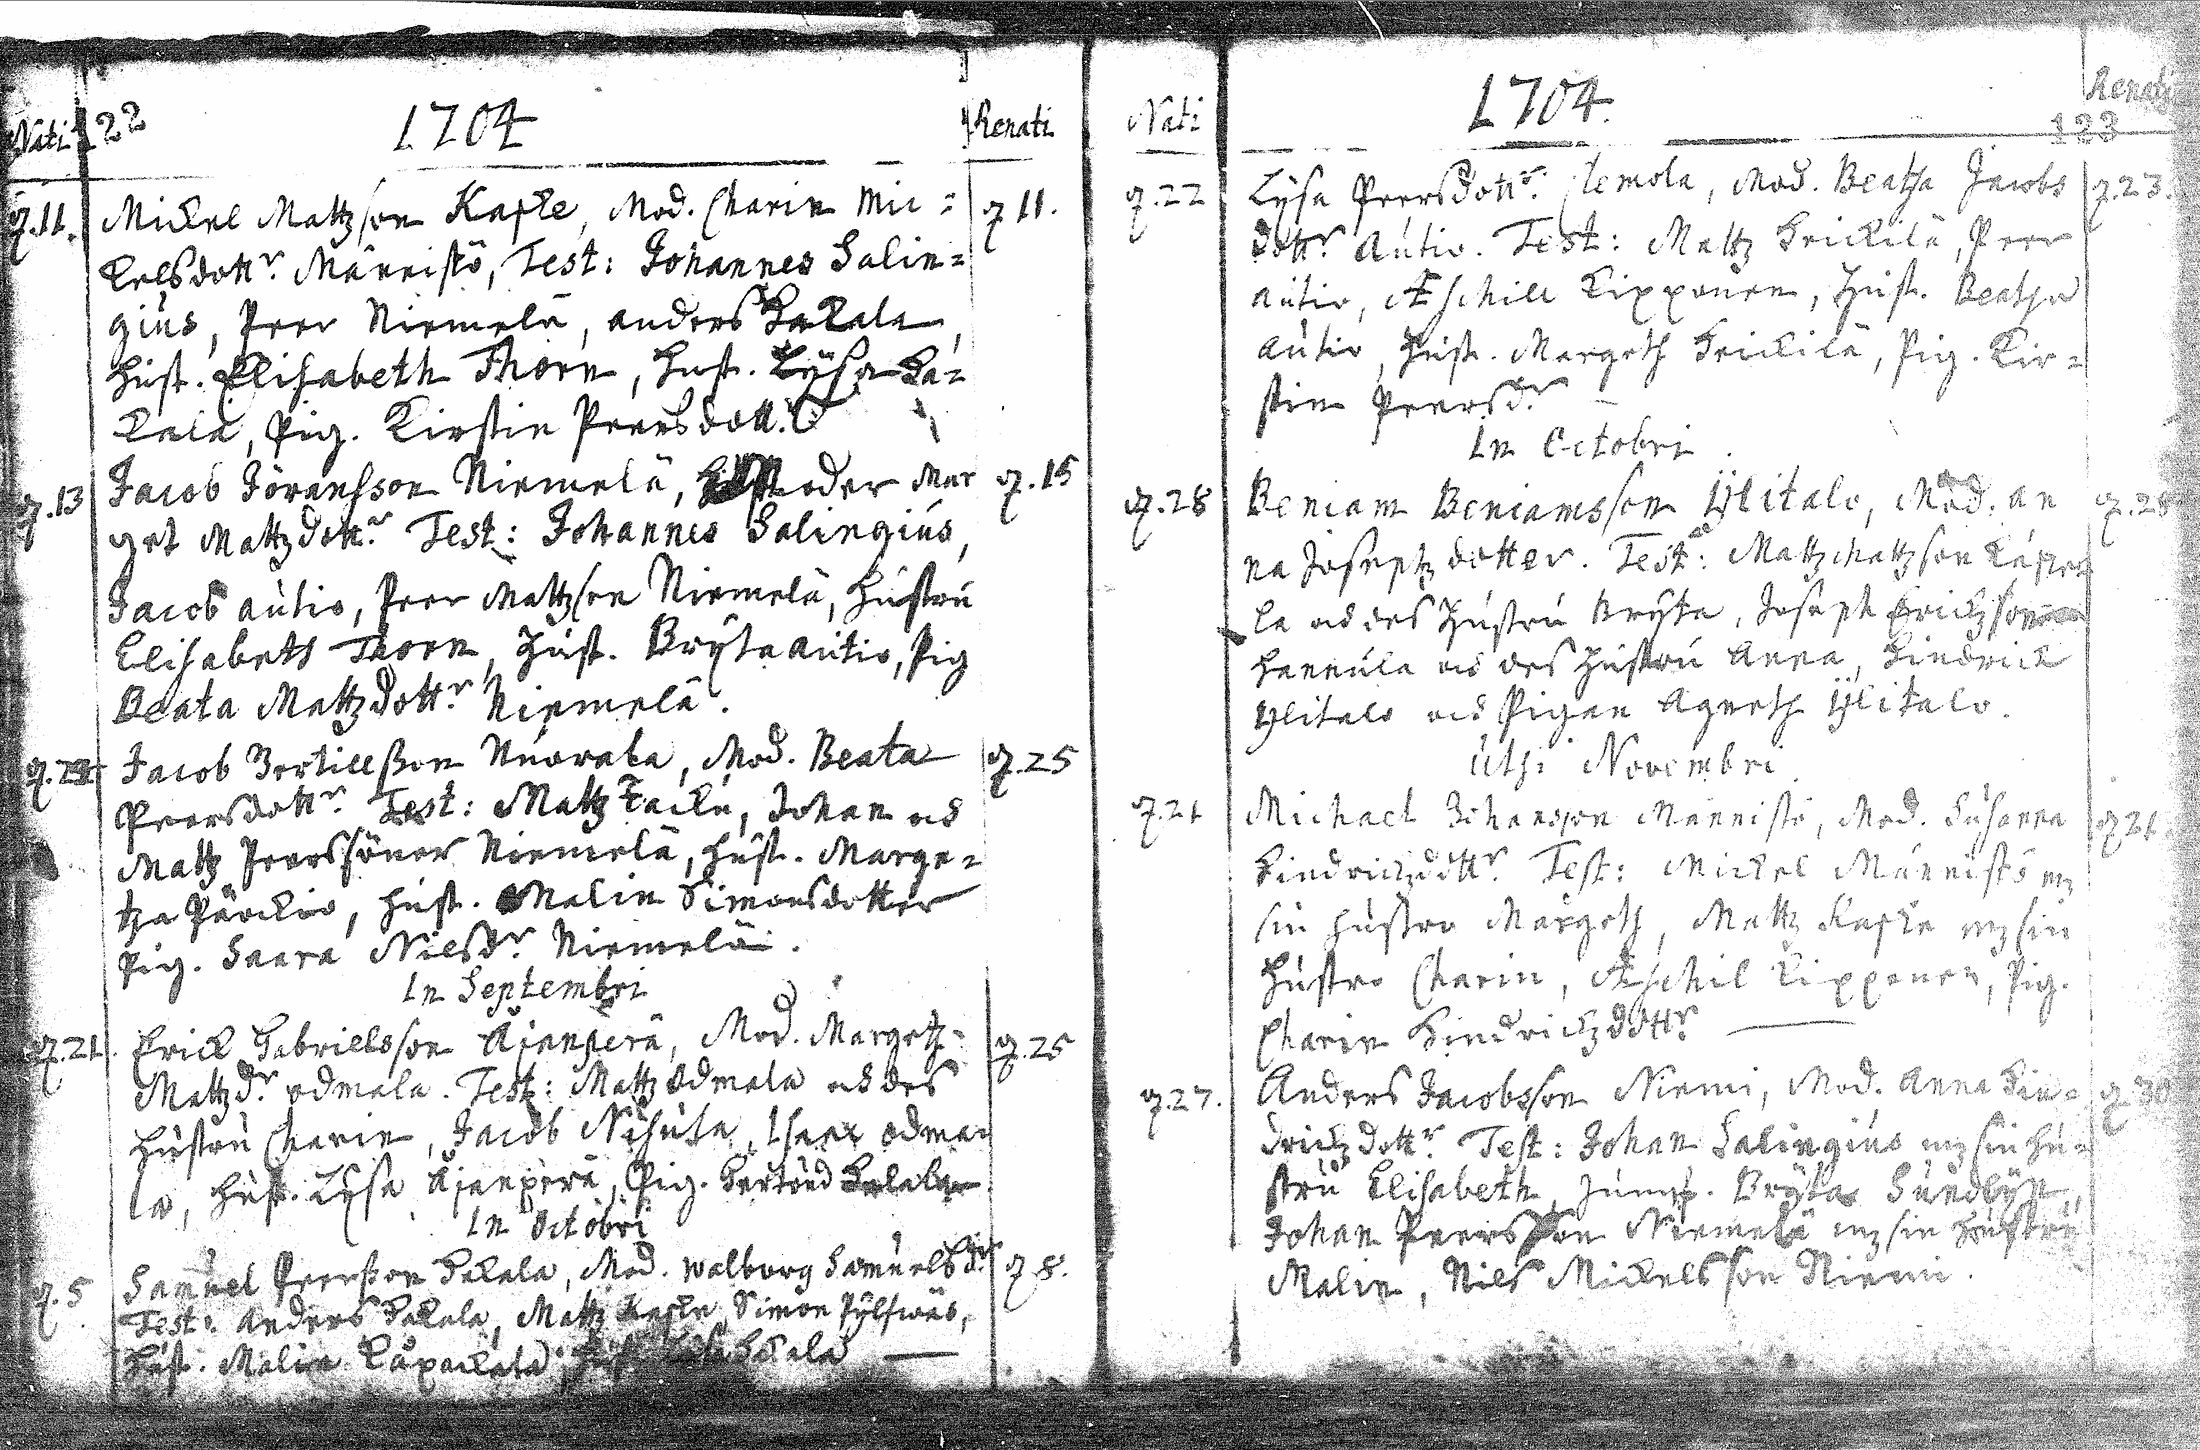 Nati 122 1704 Renati
d. 11. Mickel Mattzson Kaske, Mod. Charin Mic= d 11.
kelsdottr. Männistö, Test: Johannes Salin=
gius, Peer Niemelä, anders Sakala,
Hust. Elisabeth Thorn, Hust. Lÿsa Sa=
kala, Pig. Kirstin Peersdott.
d. 13 Jacob Jöransson Niemelä, Moder Mar d. 15
get Mattzdottr. Test: Johannes Salingius,
Jacob autio, Peer Mattzson Niemelä, Hustru
Elisabeth Thorn, Hust. Brÿta autio, Pig
Beata Mattzdottr Niemelä.
Jacob Bertillsson Nuorala, Mod. Beata d. 25
Peersdottr. Test: Mattz Facku, Johan och
Mattz Peerssöner Niemelä, Hust. Marge=
tza Pärckio, Hust. Malin Simonsdotter
Pig. Saara Nilsdr Niemelä.
In Septembri
d. 21. Erick Gabrielsson Äjanperä, Mod. Margetz d. 25
Mattzdr odmala. Test: Mattz Odmala och des
Hustru Charin, Jacob Nisula, Isaax odma=
la, Hust. Lÿsa Äjanperä, Pig. Gertrud
In Octobri
d. 5 Samuel Peersson Sakala, Mod. Walborg Samuelsdr d 8.
Test: Anders Sakala, Mattz Kaske, Simon
Hust. Malin Sakala
Nati 1704. Renati
123
d. 22 Lÿsa Peersdottr. Clemola, Mod. Beatha Jacobs d. 23.
dottr. Autio. Test: Mattz Krickilä, Peer
autio, Æschill Kipponen, Hust. Beatha
autio, Hust. Margeth Krickilä, Pig. Kir=
stin Peersdr
In Octobri.
d. 28 Beniam Beniamsson Ÿlitalo, Mod. an d. 28
na Josephz dotter. Test: Mattz Mattzson
la och des Hustru Brÿta, Joseph Erickzson
Hannula och des Hustru Anna, Hindrick
Ÿlitalo och Pigan Agneth Ÿlitalo.
Uthi Novembri
d. 21 Michael Johansson Männistö, Mod. Susanna d 21.
Hindrickzdottr. Test: Mickel Männistö mz
sin Hustru Margeth, Mattz Kaske mz sin
Hustru Charin, Æschil Kipponen, Pig.
Charin Hindrickzdottr.
d. 27. Anders Jacobsson Niemi, Mod. Anna Hin= d. 30
drickzdottr Test: Johan Salingius mz sin Hu=
stru Elisabeth, Jungf. Brÿta
Johan Peersson Niemelä mz sin Hustru
Malin, Nils Mickelsson Niemi.